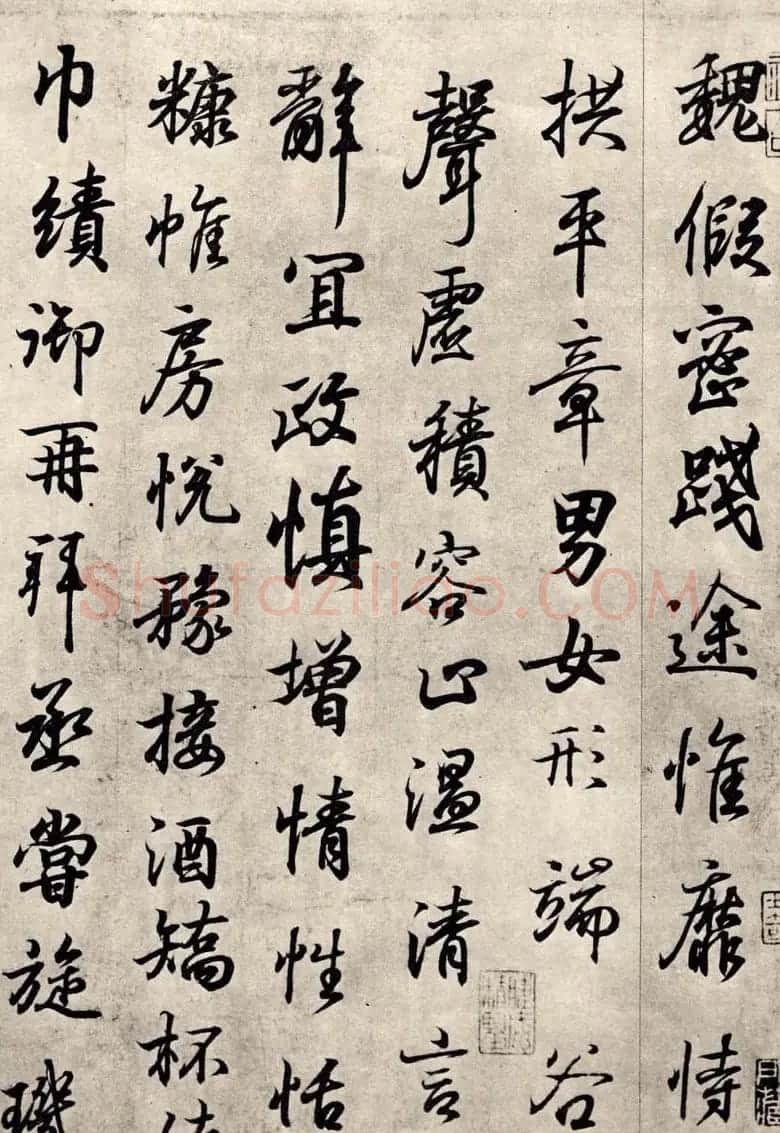 魏假密踐途惟靡恃
拱平章男女形端谷
聲虛積容止溫清言
辭宜政慎增情性恬
糠帷房悅豫接酒矯杯
巾績御再拜丞嘗旋璣
Shufaziliao.COM